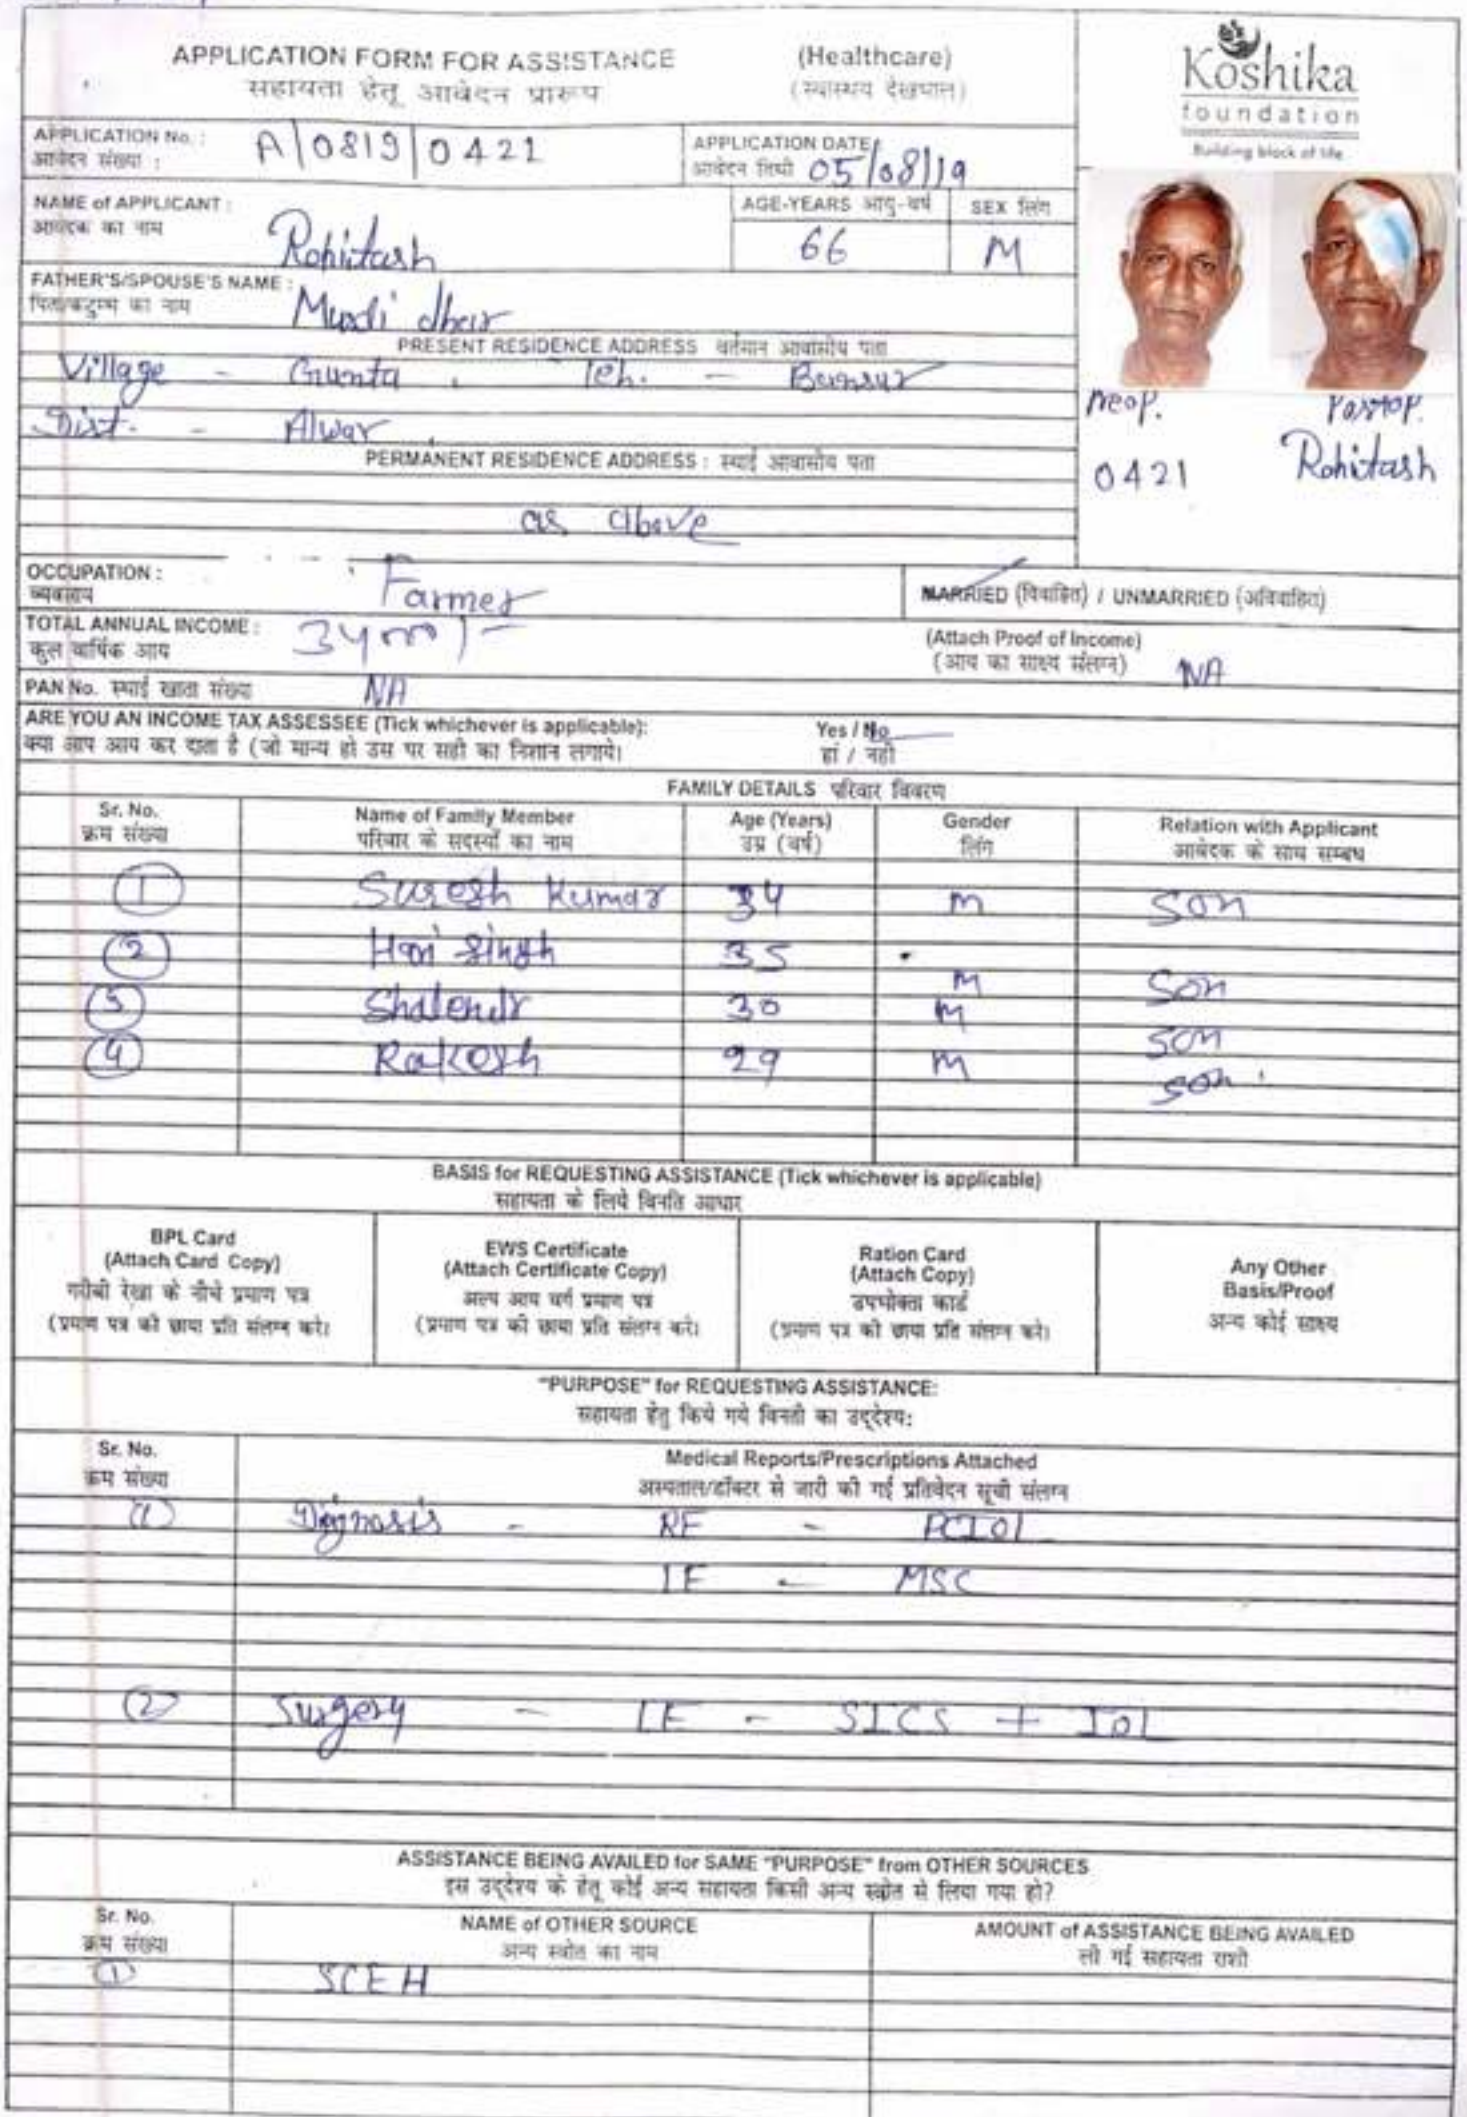 APPLICATION FORM FOR ASSISTANCE (Healthcare)
सहायता हेतू आवेदन प्रारूप (स्वास्थय देखभाल)
Koshika
foundation
Building block of life
APPLICATION No. : A/0819/0421
आवेदन संख्या :
APPLICATION DATE
आवेदन तिथी 05/08/19
NAME of APPLICANT :
आवेदक का नाम Rohitash
AGE-YEARS आयु-वर्ष 66
SEX लिंग M
FATHER'S/SPOUSE'S NAME :
पिता/कटुम्भ का नाम
dhar
PRESENT RESIDENCE ADDRESS वर्तमान आवासीय पता
Village - Gunta , Teh. - Bansur
Dist. - Alwar
PERMANENT RESIDENCE ADDRESS : स्थाई आवासीय पता
as above
Preop. Postop.
0421 Rohitash
OCCUPATION : Farmer
व्यवसाय
MARRIED (विवाहित) / UNMARRIED (अविवाहित)
TOTAL ANNUAL INCOME :
कुल वार्षिक आय
(Attach Proof of Income)
(आय का साक्ष्य संलग्न) NA
PAN No. स्थाई खाता संख्या NA
ARE YOU AN INCOME TAX ASSESSEE (Tick whichever is applicable): Yes / No
क्या आप आय कर दाता है (जो मान्य हो उस पर सही का निशान लगाये। हां / नही
FAMILY DETAILS परिवार विवरण
Sr. No. Name of Family Member Age (Years) Gender Relation with Applicant
क्रम संख्या परिवार के सदस्यों का नाम उम्र (वर्ष) लिंग आवेदक के साथ सम्बध
1 Suresh Kumar 34 M Son
2 Hari Singh 35 M Son
3 Shalendr 30 M Son
4 Rakesh 29 M Son
BASIS for REQUESTING ASSISTANCE (Tick whichever is applicable)
सहायता के लिये विनति आधार
BPL Card
(Attach Card Copy)
गरीबी रेखा के नीचे प्रमाण पत्र
(प्रमाण पत्र की छाया प्रति संलग्न करे।
EWS Certificate
(Attach Certificate Copy)
अल्प आय वर्ग प्रमाण पत्र
(प्रमाण पत्र की छाया प्रति संलग्न करे।
Ration Card
(Attach Copy)
उपभोक्ता कार्ड
(प्रमाण पत्र की छाया प्रति संलग्न करे।
Any Other
Basis/Proof
अन्य कोई साक्ष्य
"PURPOSE" for REQUESTING ASSISTANCE:
सहायता हेतु किये गये विनती का उद्देश्य:
Sr. No. Medical Reports/Prescriptions Attached
क्रम संख्या अस्पताल/डॉक्टर से जारी की गई प्रतिवेदन सूची संलग्न
(1) Diagnosis - RE - PCIOL
LE - MSC
(2) Surgery - LE - SICS + IOL
ASSISTANCE BEING AVAILED for SAME "PURPOSE" from OTHER SOURCES
इस उद्देश्य के हेतू कोई अन्य सहायता किसी अन्य स्त्रोत से लिया गया हो?
Sr. No. NAME of OTHER SOURCE AMOUNT of ASSISTANCE BEING AVAILED
क्रम संख्या अन्य स्त्रोत का नाम ली गई सहायता राशी
1 SCEH